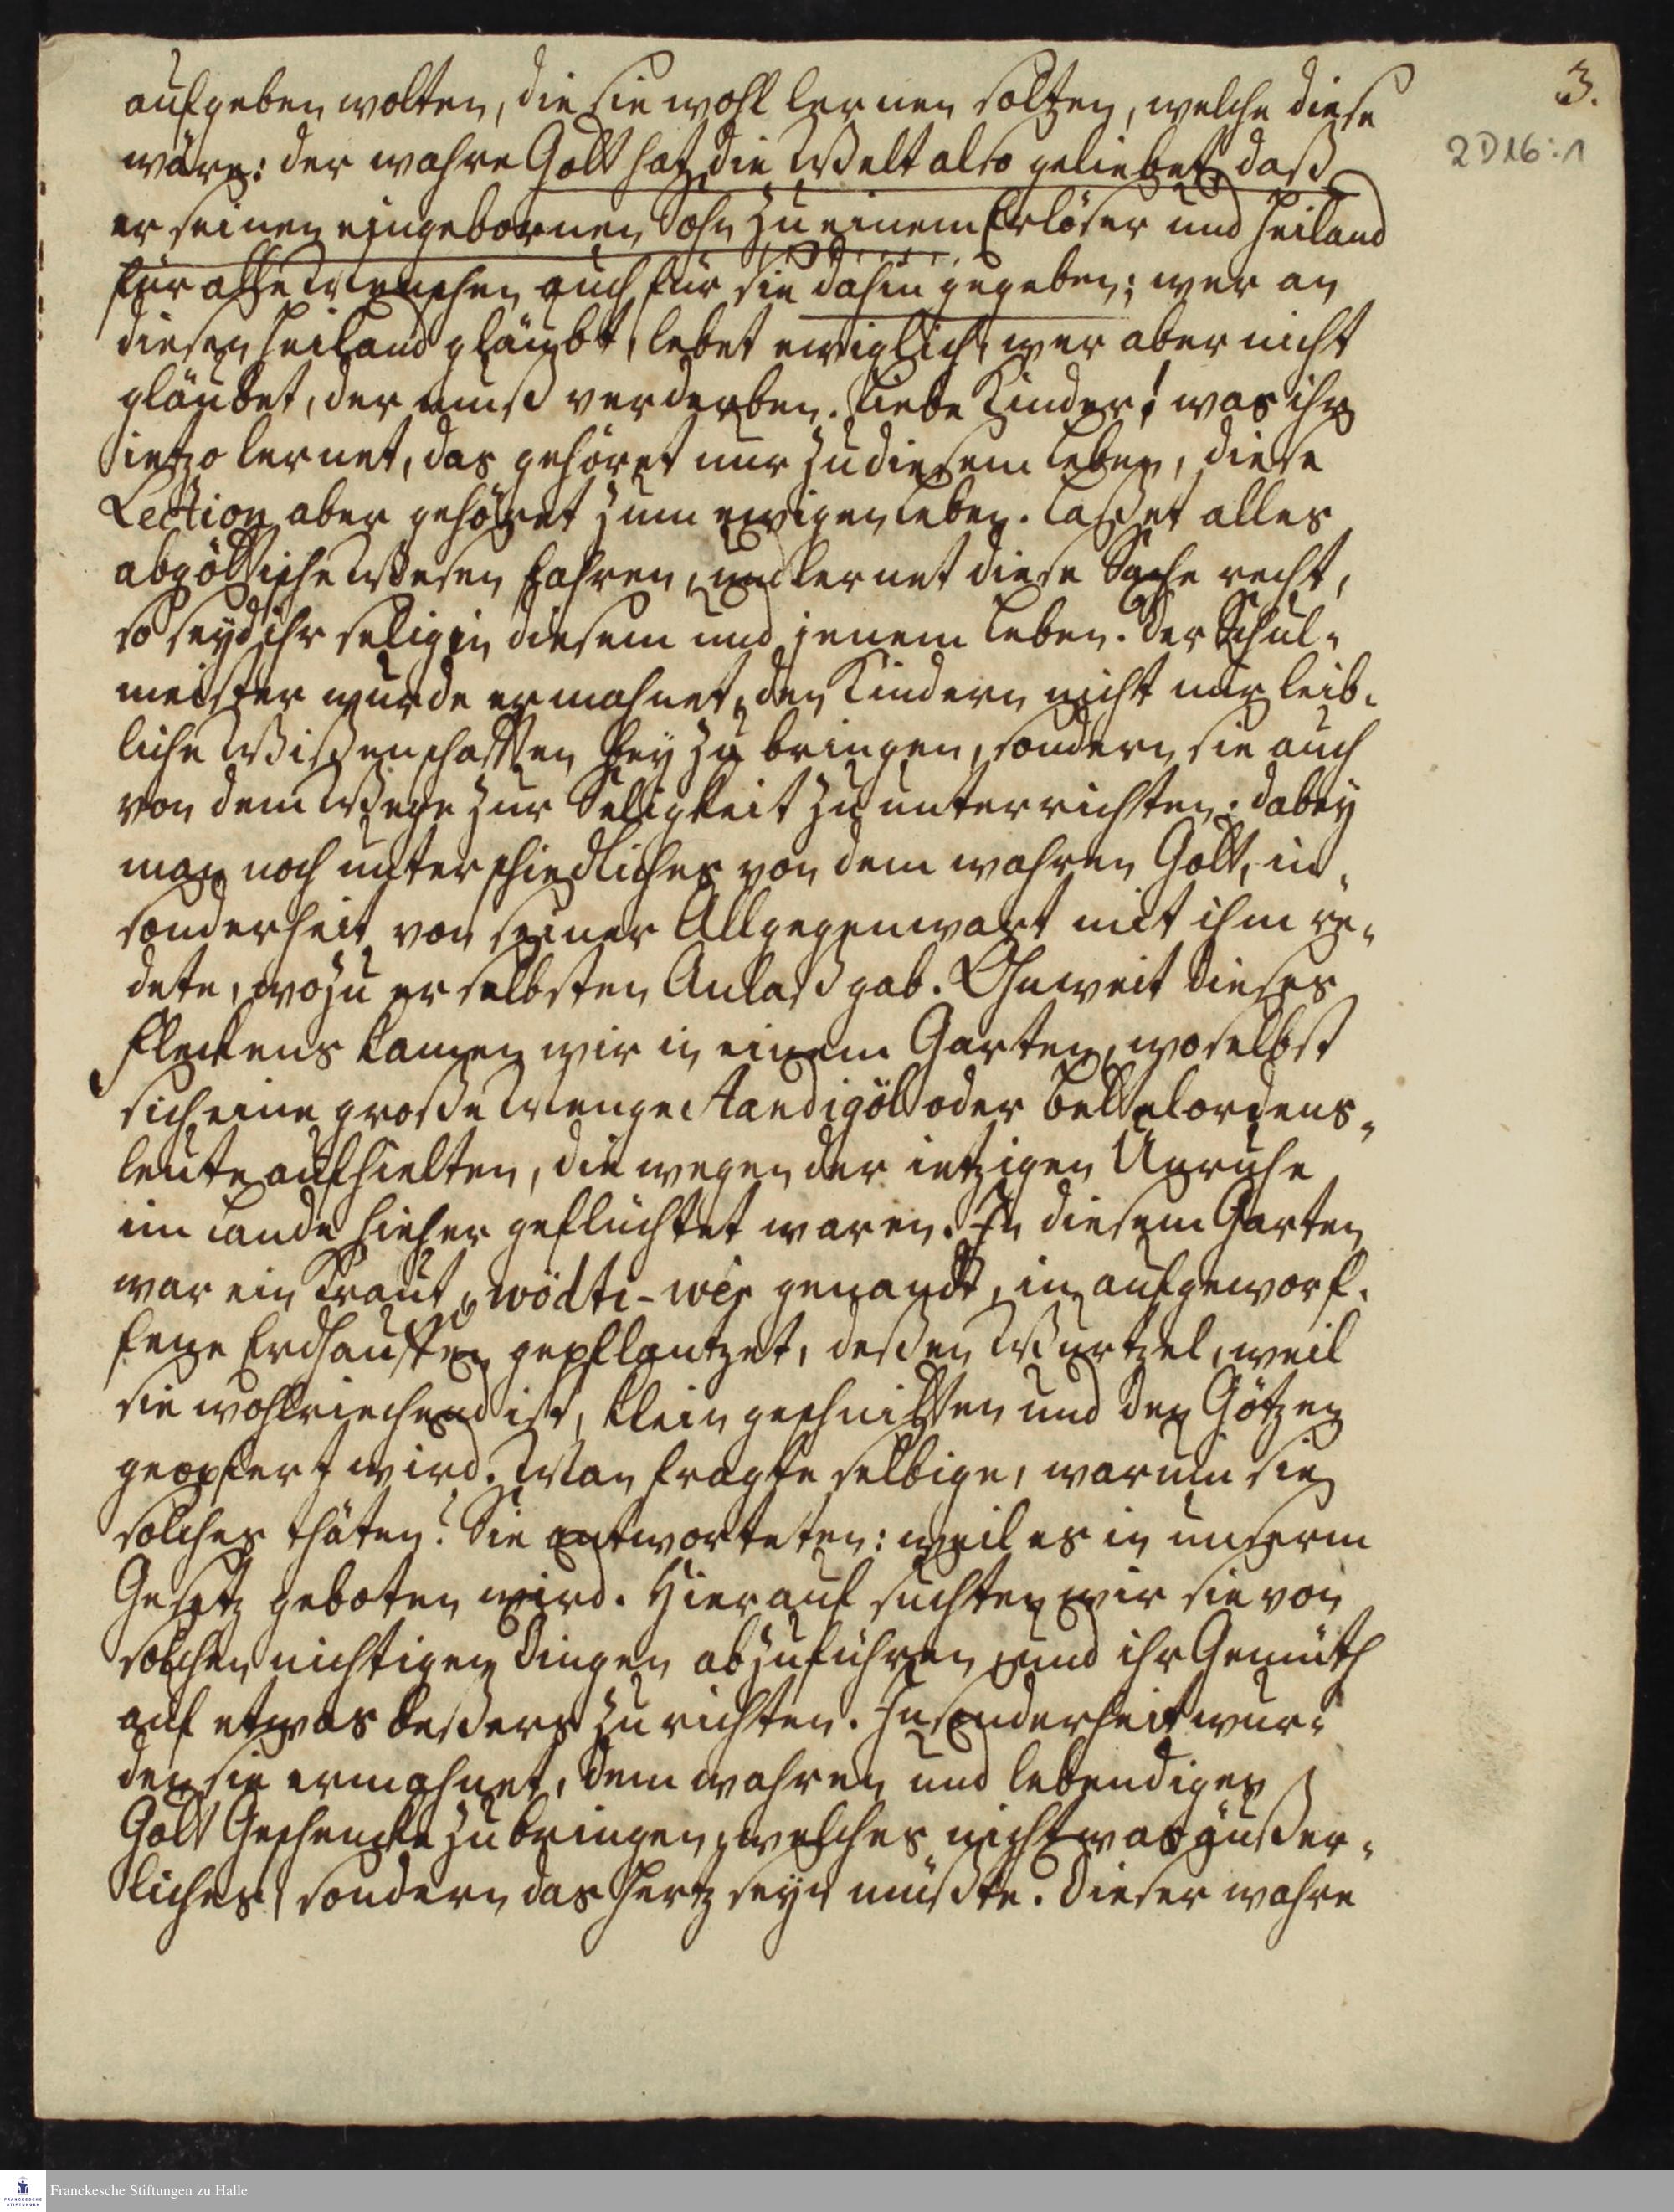 3.
2D16:1
aufgeben wolten, die sie wohl lernen solten, welche diese
wäre: der wahre Gott hat die Welt also geliebet, daß
er seinen eingebornen Sohn zu einem Erlöser und Heiland
für alle Menschen auch für sie dahin gegeben; wer an
diesen Heiland gläubt, lebet ewiglich, wer aber nicht
gläubet, der muß verderben. Liebe Kinder! was ihr
ietzo lernet, das gehöret nur zu diesem Leben, diese
Lection aber gehöret zum ewigen Leben. Laßet alles
abgöttische Wesen fahren, und lernet diese Sache recht,
so seyd ihr selig in diesem und jenem Leben. Der Schul-
meister wurde ermahnet, den Kindern nicht nur leib-
liche Wißenschafften bey zu bringen, sondern sie auch
von dem Wege zur Seligkeit zu unterrichten; dabey
man noch unterschiedliches von dem wahren Gott, in-
sonderheit von seiner Allgegenwart mit ihm re-
dete, wozu er selbsten Anlaß gab. Ohnweit dieses
Fleckens kamen wir in einem Garten, woselbst
sich eine große Menge Aandigöl oder Bettelordens-
leute aufhielten, die wegen der ietzigen Unruhe
im Lande hieher geflüchtet waren. In diesem Garten
war ein Kraut, wödti-wer genandt, in aufgeworf-
fene Erdhauffen gepflantzet, deßen Wurtzel, weil
sie wohlriechend ist, klein geschnitten und den Götzen
geopfert wird. Man fragte selbige, warum sie
solches thäten? Sie antworteten: weil es in unserm
Gesetz geboten wird. Hierauf suchten wir sie von
solchen nichtigen Dingen abzuführen und ihr Gemüth
auf etwas beßers zu richten. Insonderheit wur-
den sie ermahnet, dem wahren und lebendigen
Gott Geschencke zu bringen, welches nicht was äußer-
liches, sondern das Hertz seyn müßte. Dieser wahre
FRANCKESCHE STIFTUNGEN
Franckesche Stiftungen zu Halle